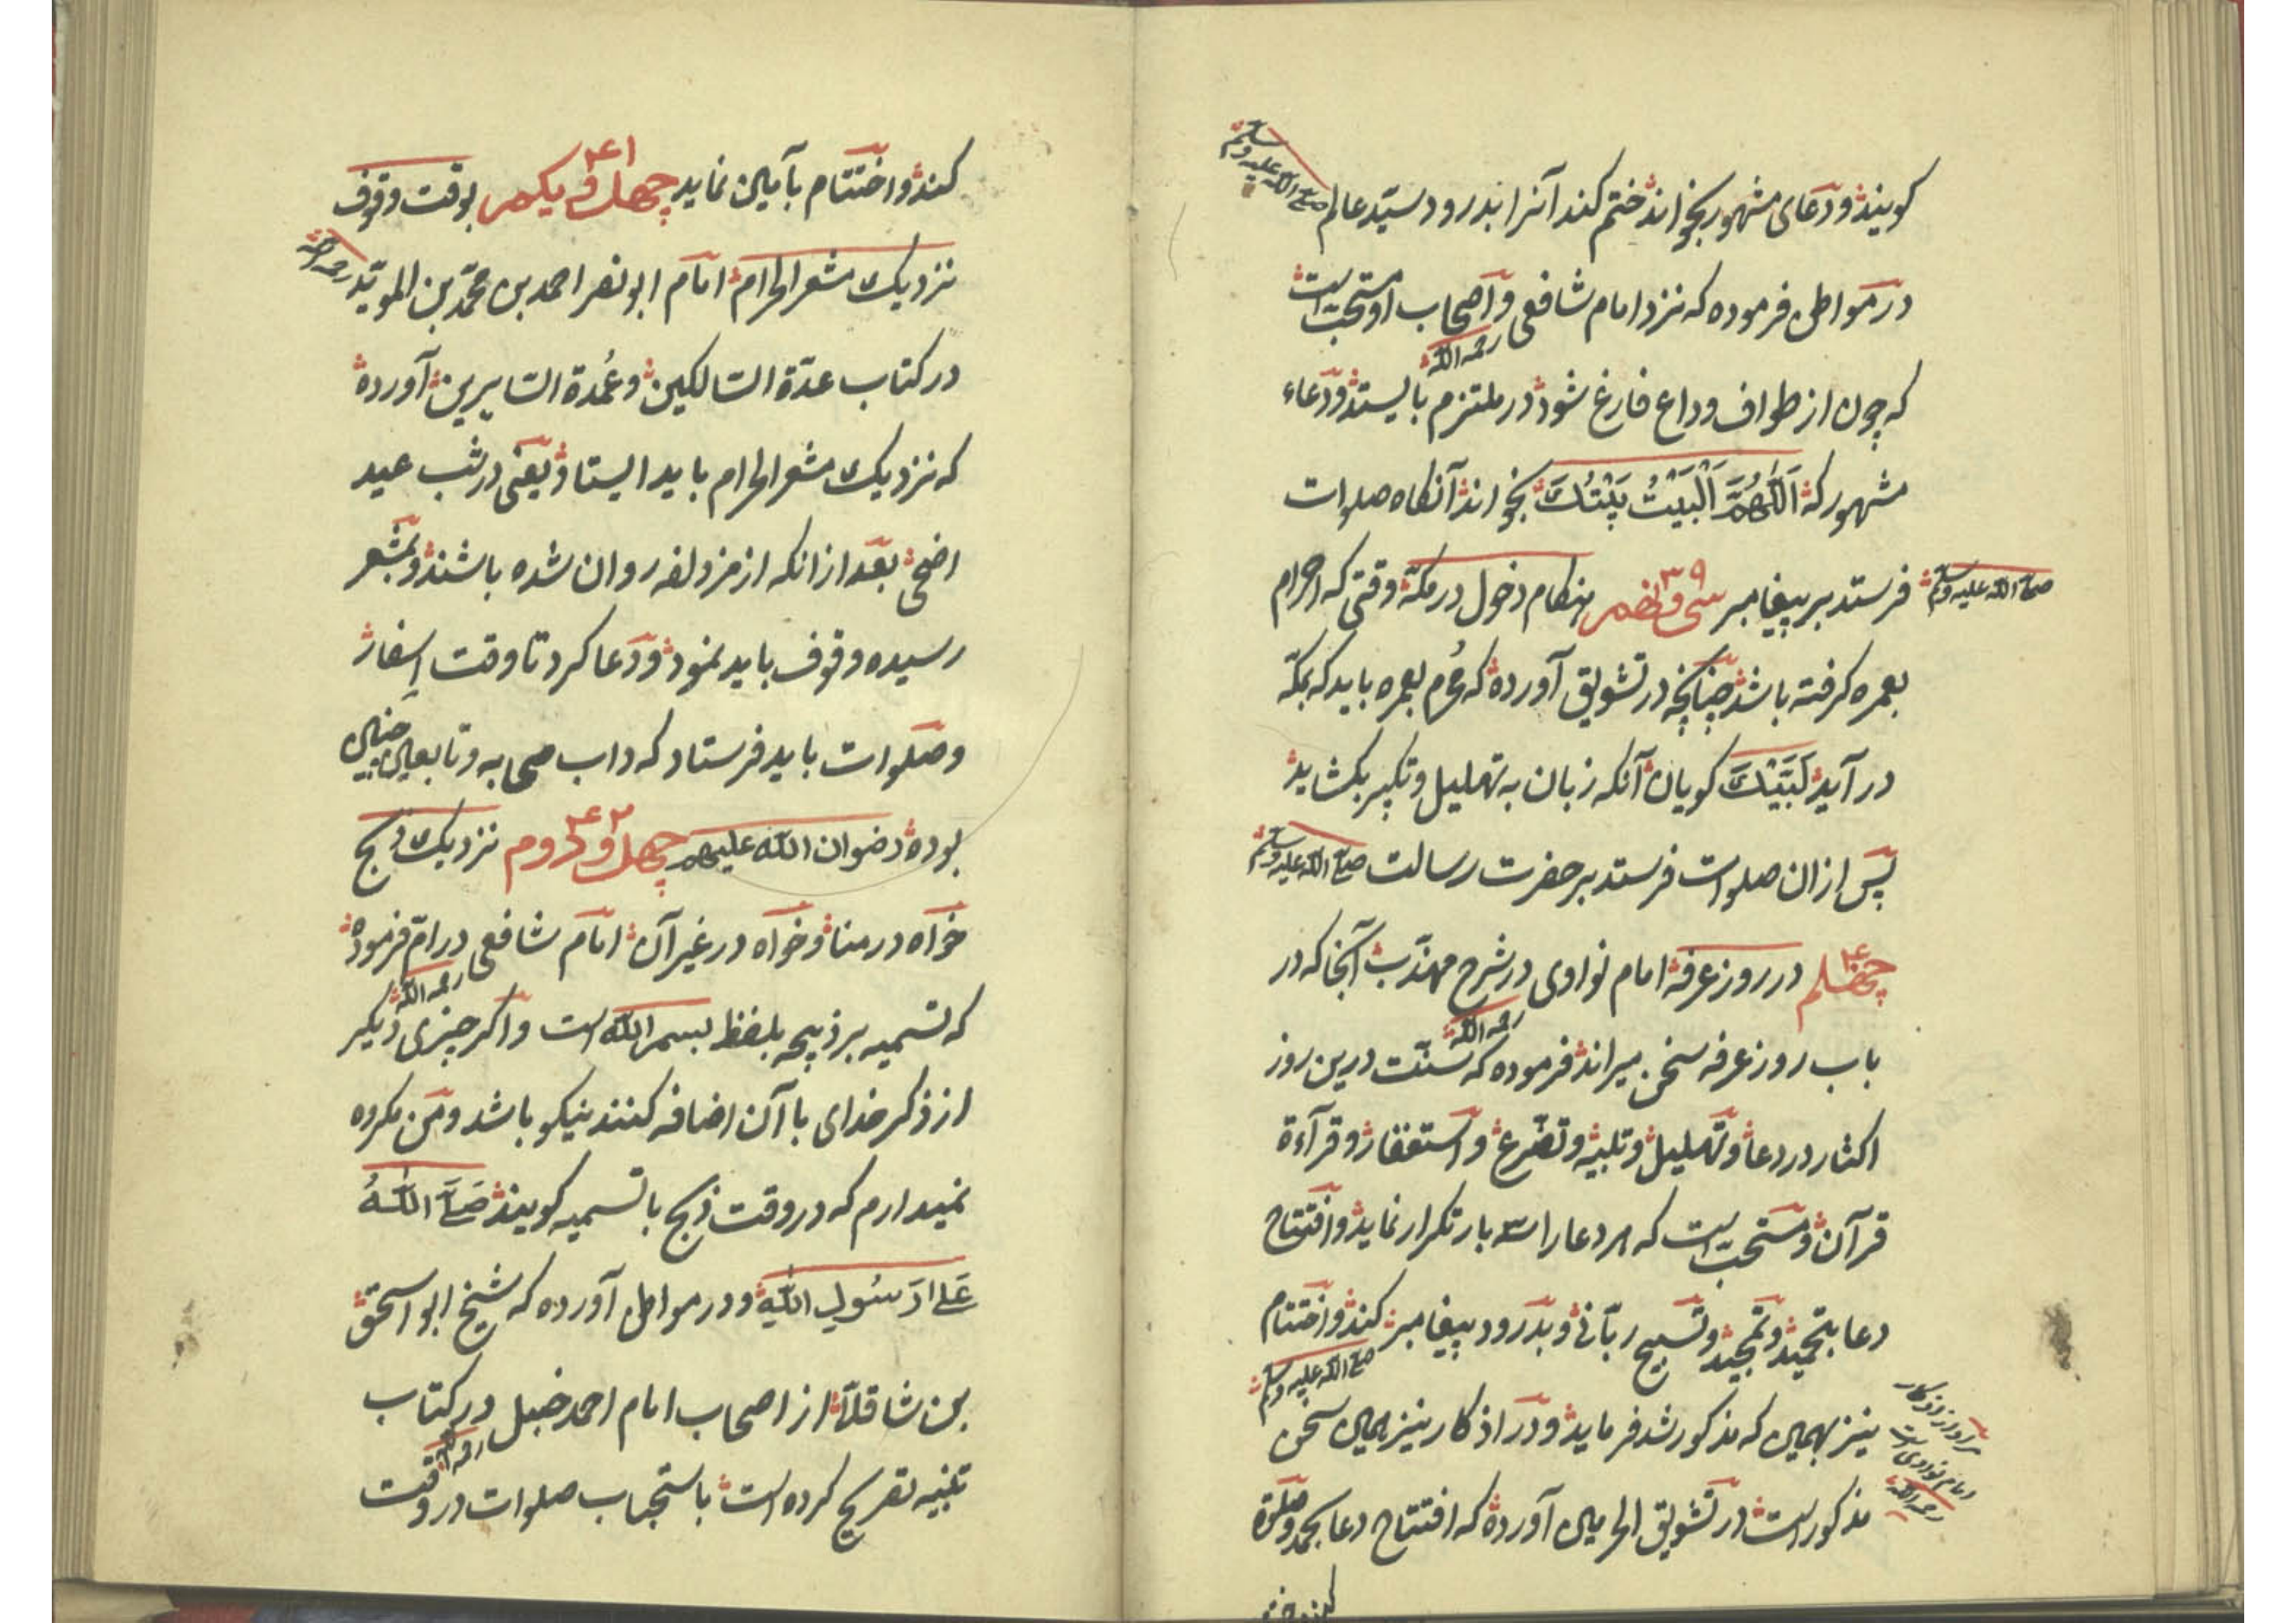 کویند و دعای مشهور بخواند ختم کند آنرا بدرود سیّد عالم صلی الله علیه وسلم
در مواطن فرموده که نزد امام شافعی و اصحاب او مستحبّ است
رحمه الله
که چون از طواف وداع فارغ شود در ملتزم بایستد و دعاء
مشهور که اَللّٰهُمَّ اَلْبَیْتُ بَیْتُکَ بخواند آنکاه صلوات
صلی الله علیه وسلم
فرستد بر پیغامبر سی و نهم ۳۹ هنکام دخول در مکّه وقتی که احرام
بعمره کرفته باشد چنانچه در تشویق آورده که محرم بعمره باید که بمکّه
در آید لَبَّیْکَ کویان آنکه زبان به تهلیل و تکبیر بکشاید
پس ازان صلوات فرستد بر حضرت رسالت صلی الله علیه وسلم
چهلم ۴۰ در روز عرفه امام نواوی در شرح مهذّب آنجا که در
رحمه الله
باب روز عرفه سخن میراند فرموده که سنّت درین روز
اکثار در دعا و تهلیل و تلبیه و تضرّع و استغفار و قرآءة
قرآن و مستحبّ است که هر دعا را سه بار تکرار نماید و افتتاح
دعا بتحمید و تمجید و تسبیح ربّانی و بدرود پیغامبر کند و اختتام
صلی الله علیه وسلم
نیز بهمین که مذکور شد فرماید و در اذکار نیز همین سخن
مراد از اذکار
امام نواوی است
رحمه الله
مذکور است در تشویق الحرمین آورده که افتتاح دعا بحمد و صلوة
کند و اختتام بآمین نماید چهل و یکم ۴۱ بوقت وقوف
نزدیک مشعر الحرام امام ابو نصر احمد بن محمّد بن المویّد رحمه الله
در کتاب عدّة السّالکین و عُمدة السّایرین آورده
که نزدیک مشعر الحرام باید ایستاد یعنی در شب عید
اضحی بعد ازانکه از مزدلفه روان شده باشند و بمشعر
رسیده وقوف باید نمود و دعا کرد تا وقت اِسفار
و صلوات باید فرستاد که داب صحابه و تابعین چنین
بوده رضوان الله علیهم چهل و دوم ۴۲ نزدیک ذبح
خواه در منا و خواه در غیر آن امام شافعی در امّ فرموده
رحمه الله
که تسمیه بر ذبیحه بلفظ بسم الله است و اکر چیزی دیکر
از ذکر خدای با آن اضافه کنند نیکو باشد و من مکروه
نمیدارم که در وقت ذبح با تسمیه کویند صَلَّی اللّٰهُ
عَلیٰ رَسُولِ اللّٰهِ و در مواطن آورده که شیخ ابو اسحق
بن شاقلا از اصحاب امام احمد حنبل در کتاب
رحمه الله
تنبیه تصریح کرده است باستحباب صلوات در وقت